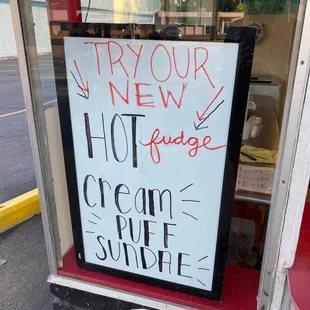 TRY OUR
NEW
HOT fudge
Cream
PUFF
SUNDAE